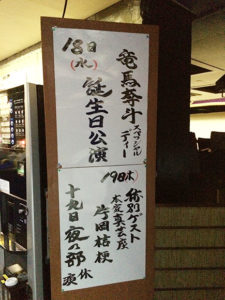 18日
(水)
竜馬奮斗
スペシャルディー
誕生日公演
19日(木)
特別ゲスト
本気真芸座
片岡桔梗
十九日夜の部
休演